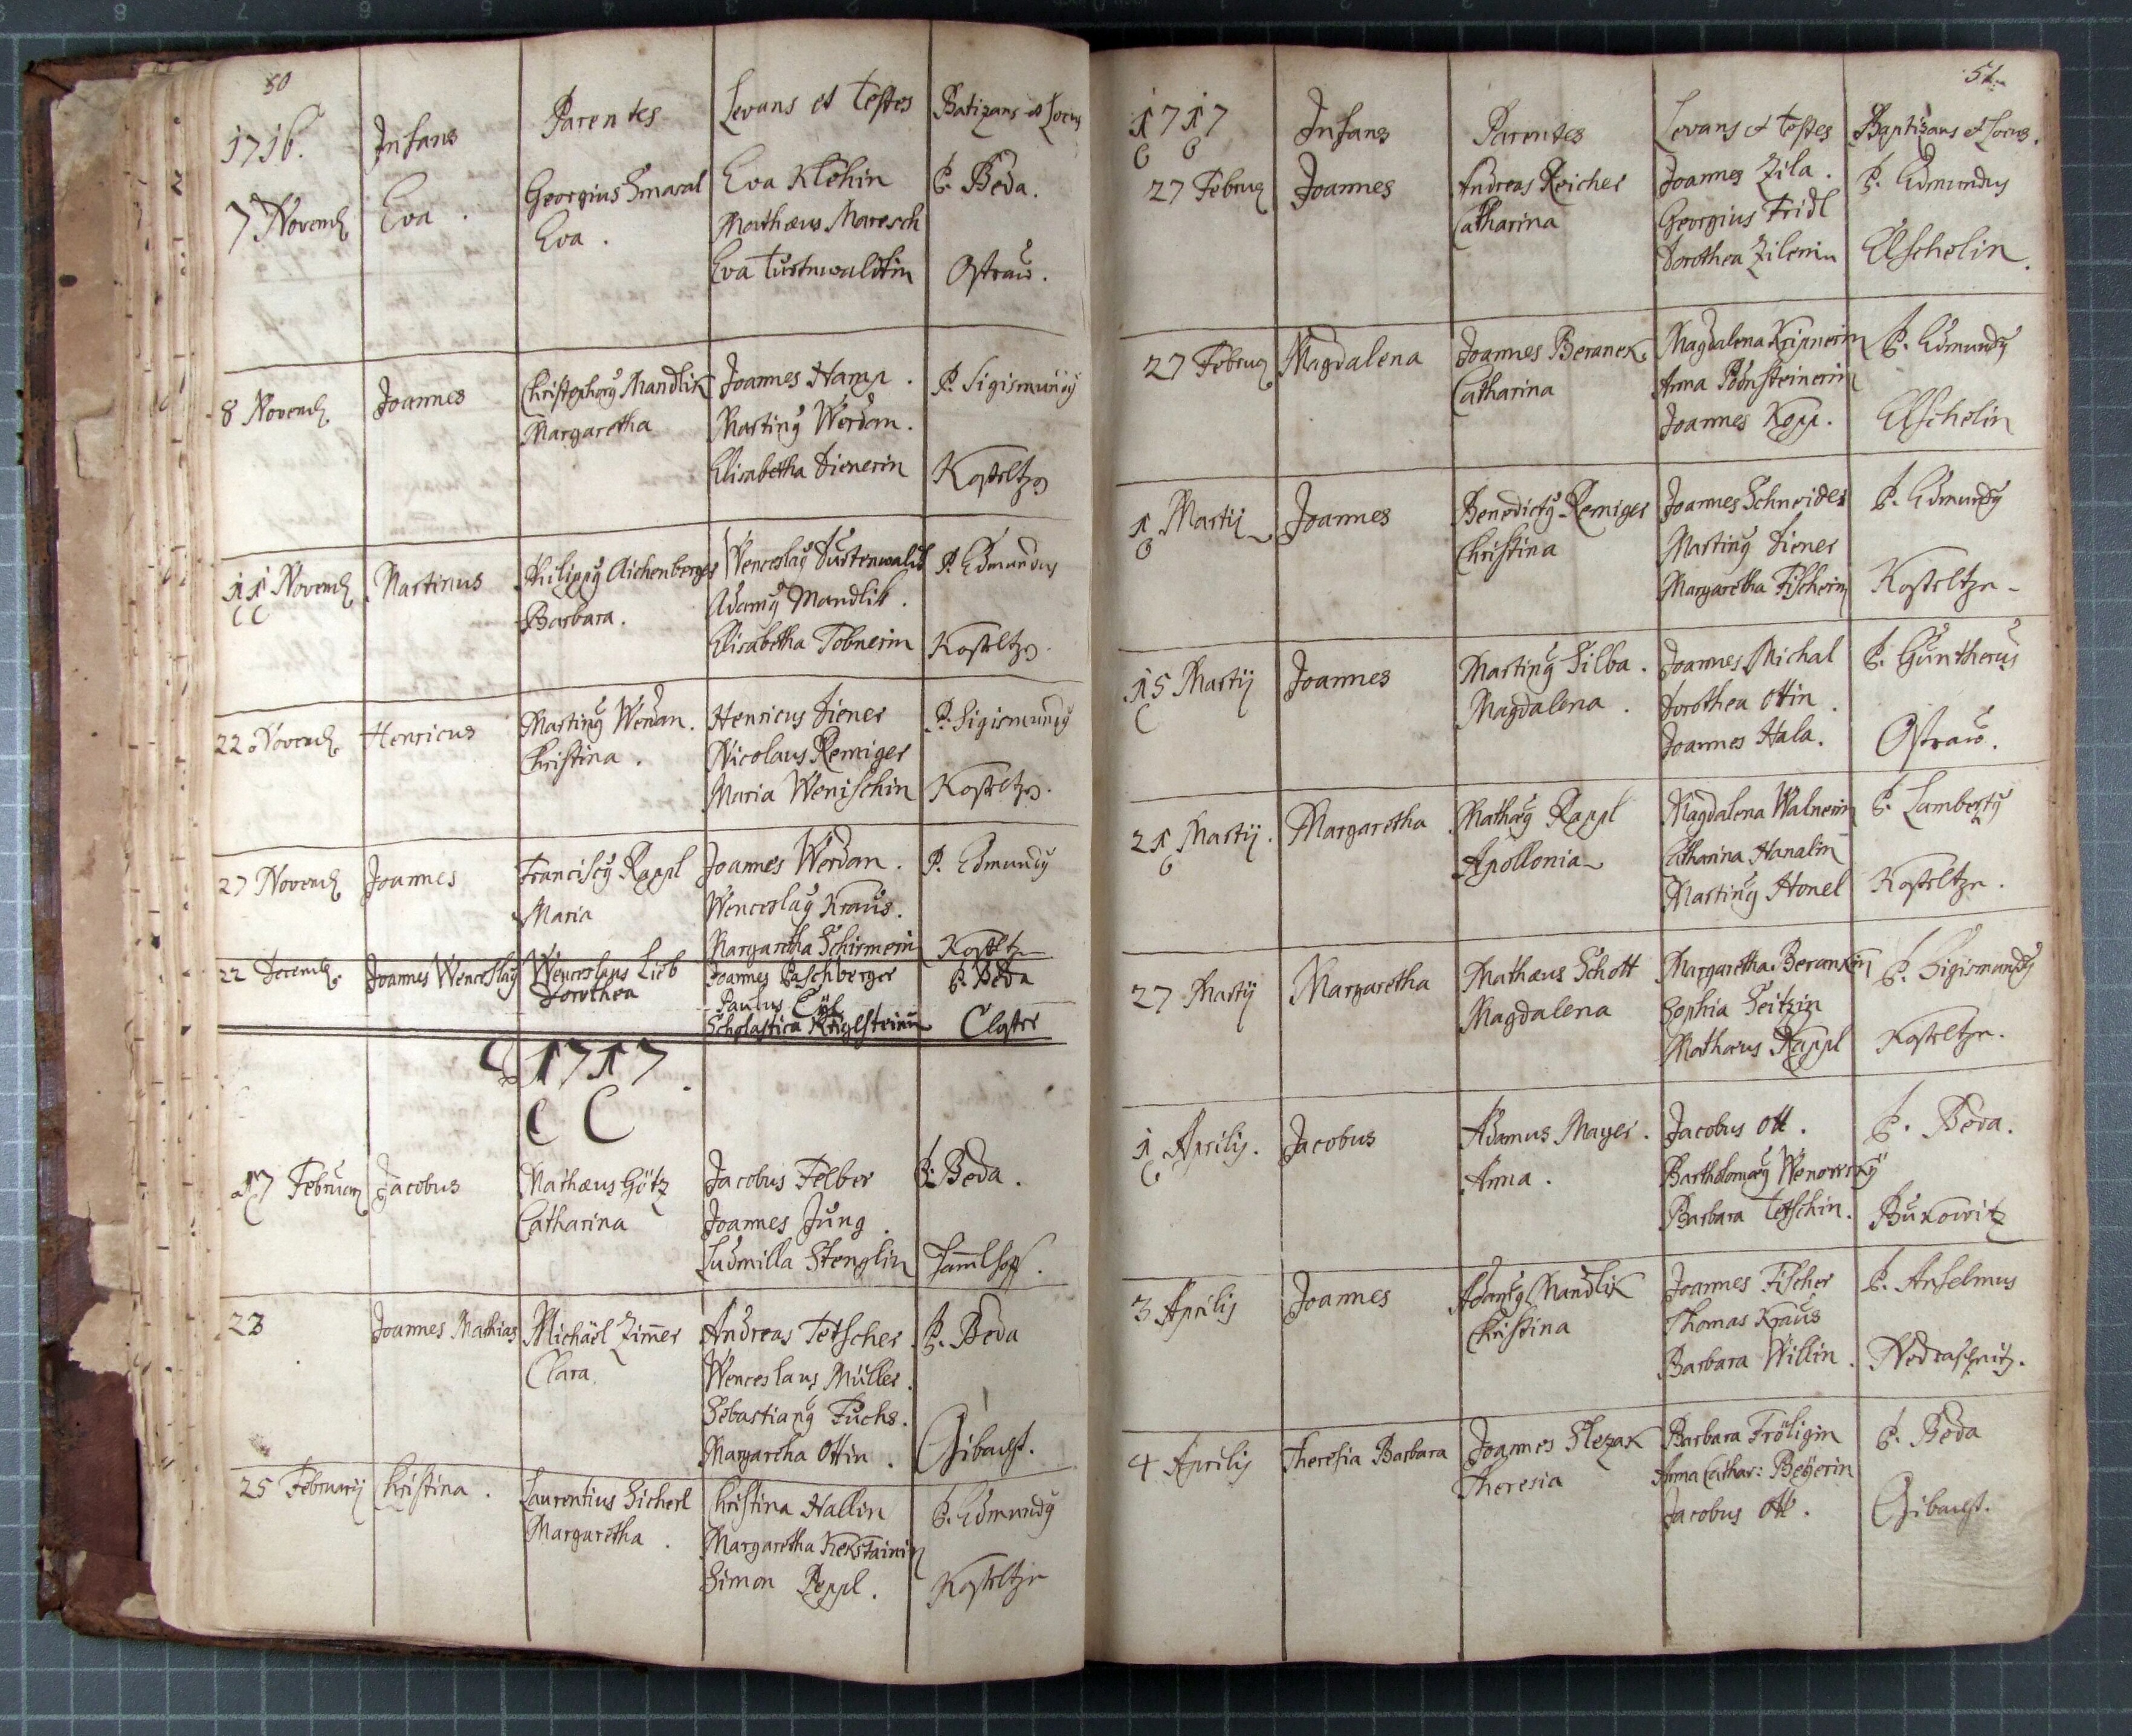 50
1716. Infans Parentes Levans et testes Batizans et Locus
7 Novemb. Eva. Georgius Smaral Eva Klehin P. Beda.
Eva. Mathæus Maresch
Eva Turtnwaldtin Ostraw.
8 Novemb. Joannes Christophorus Mandlik Joannes Hamp. P. Sigismundus
Margaretha Martinus Werdan.
Elisabetha Dienerin Kosteltzn
11 Novemb. Martinus Philippus Aichenberger Wenceslaus Durtenwaldt P. Edmundus
Barbara. Adamus Mandlik.
Elisabetha Tobnerin Kosteltzn.
22 Novemb. Henricus Martinus Werdan. Henricus Diener P. Sigismundus
Christina. Nicolaus Remiger
Maria Wenischin Kosteltzn.
27 Novemb. Joannes Franciscus Rappl Joannes Werdan. P. Edmundus
Maria Wenceslaus Kraus.
Margaretha Schirmerin Kosteltzn
22 Decemb. Joannes Wenceslaus Wenceslaus Lieb Joannes Paschberger P. Beda
Dorothea Paulus
Scholastica Closter
1717.
17 Februar Jacobus Mathæus Götz Jacobus Felber P. Beda.
Catharina Joannes Jung.
Ludmilla Stenglin
23 Joannes Mathias Michäel Zim̄er Andreas Tetscher P. Beda
Clara. Wenceslaus Müller.
Sebastianus Fuchs.
Margaretha Ottin. Gibacht.
25 February Christina. Laurentius Sicherl Christina Hallin P. Edmundus
Margaretha. Margaretha Kekstainin
Simon Peppl. Kosteltzn
51.
1717 Infans Parentes Levans et testes Baptizans et Locus.
27 Februa Joannes Andreas Reicher Joannes Zila. P. Edmundus
Catharina Georgius Fridl
Dorothea Zilerin Elschelin.
27 Februa Magdalena Joannes Beranek. Magdalena Kripnerin P. Edmundus
Catharina Anna Pörnsteinerin
Joannes Kopp. Elschelin
1 Martij Joannes Benedictus Remiger Joannes Schneider P. Edmundus
Christina Martinus Diener
Margaretha Fischerin Kosteltzn
15 Martij Joannes Martinus Silba. Joannes Michal P. Güntherus
Magdalena. Dorothea Ottin.
Joannes Hala. Ostraw.
21 Martij. Margaretha Mathæus Rappl Magdalena Walnerin P. Lambertus
Apollonia Catharina Hanalin
Martinus Honel Kosteltzn.
27 Martij Margaretha Mathæus Schott Margaretha Berankin P. Sigismundus
Magdalena Sophia Seitzin
Mathæus Rappl Kosteltzn.
1 Aprilis. Jacobus Adamus Mayer. Jacobus Ott. P. Beda.
Anna. Bartholomæus Wenowsky
Barbara Tetschin. Bukowitz
3 Aprilis Joannes Adamus Mandlik Joannes Fischer P. Anselmus
Christina Thomas Kraus
Barbara Willin. Nedraschnitz.
4 Aprilis Theresia Barbara Joannes Slezak Barbara Fröligin P. Beda
Theresia Anna Cathar: Beÿerin
Jacobus Ott. Gibacht.